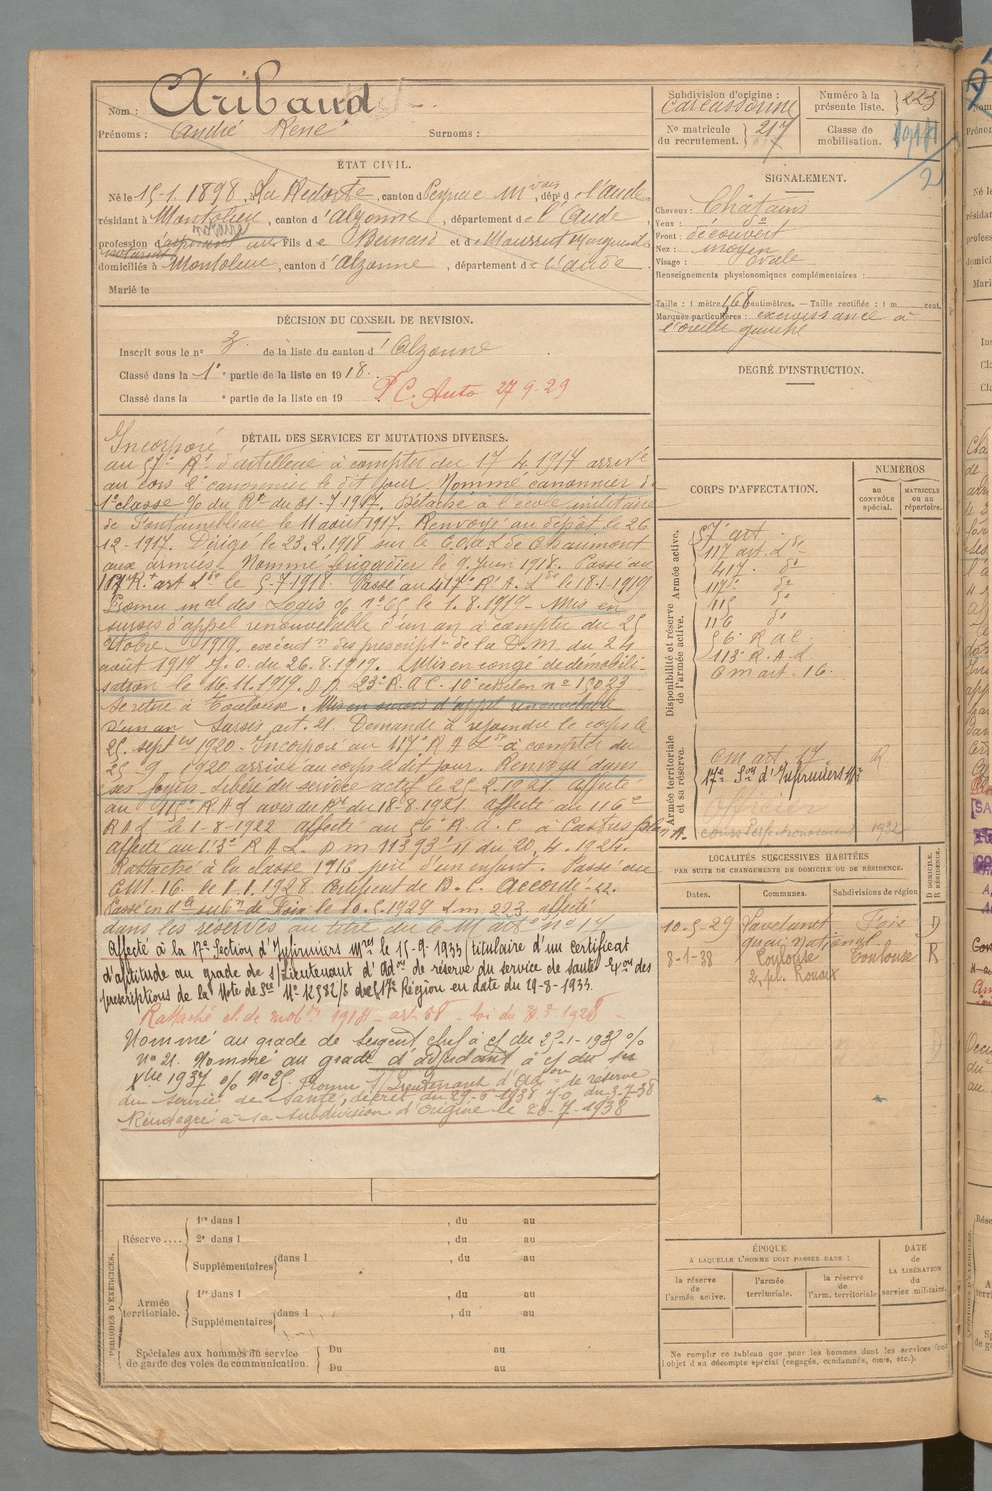 Nom : Aribaud
Prénoms : André René Surnoms :
ÉTAT CIVIL.
Né le 15-1. 1898, à La Redorte, canton de Peyriac Mvois, dépt de l'Aude
résidant à Montolieu, canton d'Alzonne, département de l'Aude
profession d' fils de Bernard et de
domiciliés à Montolieu, canton d'Alzonne, département de l'Aude.
Marié le
DÉCISION DU CONSEIL DE REVISION.
Inscrit sous le n° 3. de la liste du canton d'Alzonne
Classé dans la 1e partie de la liste en 1918.
Classé dans la e partie de la liste en 19
P. C. Auto 27-9-29
DÉTAIL DES SERVICES ET MUTATIONS DIVERSES.
Incorporé
au 57e Rt d'artillerie à compter du 17 4.1917 arrivé
au corps 2e canonnier le dit jour. Nommé canonnier de
1e classe % du Rt du 31-7-1917. Détaché à l'école militaire
de Fontainebleau le 11 août 1917. Renvoyé au dépôt le 26
12-1917. Dirigé le 23.2.1918 sur le C.O.A.L de Chaumont
aux armées. Nommé brigadier le 9 Juin 1918. Passé au
117e Rt art Lde le 5-7-1918. Passé au 417e R.A.Lde le 18-1-1919
Promu mal des Logis % n° 65 le 1.8.1919 - Mis en
sursis d'appel renouvelable d'un an à compter du 25
Octobre 1919. exécution des prescript. de la D.M. du 24
août 1919 J.O. du 26.8.1919. Mis en congé de démobili-
sation le 16.11.1919. D.D. 23e R.A.C. 10e échelon n° 13023
Se retire à Toulouse. Mis en sursis d'appel renouvelable
d'un an Sursis art. 21. Demande à rejoindre le corps le
25 septbre 1920 - Incorporé au 117e R A Lde à compter du
25-9-1920 arrivé au corps le dit jour. Renvoyé dans
ses foyers - libéré du service actif le 25.2.1921. affecté
au 115e R A L avis du Rt du 18-8-1921. affecté au 116e
R A L le 1-8-1922 affecté au 56e R.A.C. à Castres
affecté au 113e R A L. D M 11393 du 20.4.1924.
Rattaché à la classe 1916 père d'un enfant. Passé au
C.M. 16. le 1.1.1928 Certificat de B. C. accordé
Passé en d la subn de Foix le 10.5.1929 affecté
dans les réserves au titre du C M n° 17
Affecté à la 17e Section d'Infirmiers Mres le 15-9-1933 (titulaire d'un certificat
d'aptitude au grade de s/Lieutenant d'Admon de réserve du service de santé - Exon des
prescriptions de la Note de Sce N° 12582/S de la 17e Région en date du 29-8-1933.
Rattaché cl. de mobon 1914 - art. 58 - loi du 31.3.1928 -
Nommé au grade de Sergent chef à ct du 27-1-1937 %
N° 21. Nommé au grade d'adjudant à ct du 1er
Xbre 1937 % N° 25. Promu S/Lieutenant d'Admon de réserve
du Service de Santé, décret du 29-6-1938 J.O. du 3-7-38
Réintégré à sa subdivision d'origine le 28-7-1938
PÉRIODES D'EXERCICES.
Réserve....
1re dans l , du au
2e dans l , du au
Supplémentaires dans l , du au
Armée territoriale.
1re dans l , du au
Supplémentaires dans l , du au
Spéciales aux hommes du service de garde des voies de communication.
Du au
Du au
Subdivision d'origine : Carcassonne
Numéro à la présente liste. 223
N° matricule du recrutement. 217
Classe de mobilisation. 1914
2
SIGNALEMENT.
Cheveux : Châtains
Yeux : do
Front : découvert
Nez : moyen
Visage : ovale
Renseignements physionomiques complémentaires :
Taille : 1 mètre 68 centimètres. — Taille rectifiée : 1 m. cent.
Marques particulières : excroissance à
l'oreille gauche
DEGRÉ D'INSTRUCTION.
CORPS D'AFFECTATION.
NUMÉROS
AU CONTRÔLE SPÉCIAL.
MATRICULE OU AU RÉPERTOIRE.
Armée active.
57e art
117 art. Lde
417. do
117e do
Disponibilité et réserve de l'armée active.
115 do
116 do
56e R A C.
113e R.A.L
C m art. 16.
Armée territoriale et sa réserve.
C M art. 17
17e Son d'Infirmiers Mres
Officier
cours Perfectionnement 1932
LOCALITÉS SUCCESSIVES HABITÉES
PAR SUITE DE CHANGEMENTS DE DOMICILE OU DE RÉSIDENCE.
Dates. Communes. Subdivisions de région D DOMICILE. R RÉSIDENCE.
10-5-29 Lavelanet Foix D
quai National
8-1-38 Toulouse Toulouse R
2, pl. Rouaix
ÉPOQUE
A LAQUELLE L'HOMME DOIT PASSER DANS :
la réserve de l'armée active.
l'armée territoriale.
la réserve de l'arm. territoriale
DATE de LA LIBÉRATION du service militaire.
Ne remplir ce tableau que pour les hommes dont les services font
l'objet d'un décompte spécial (engagés, condamnés, omis, etc.).